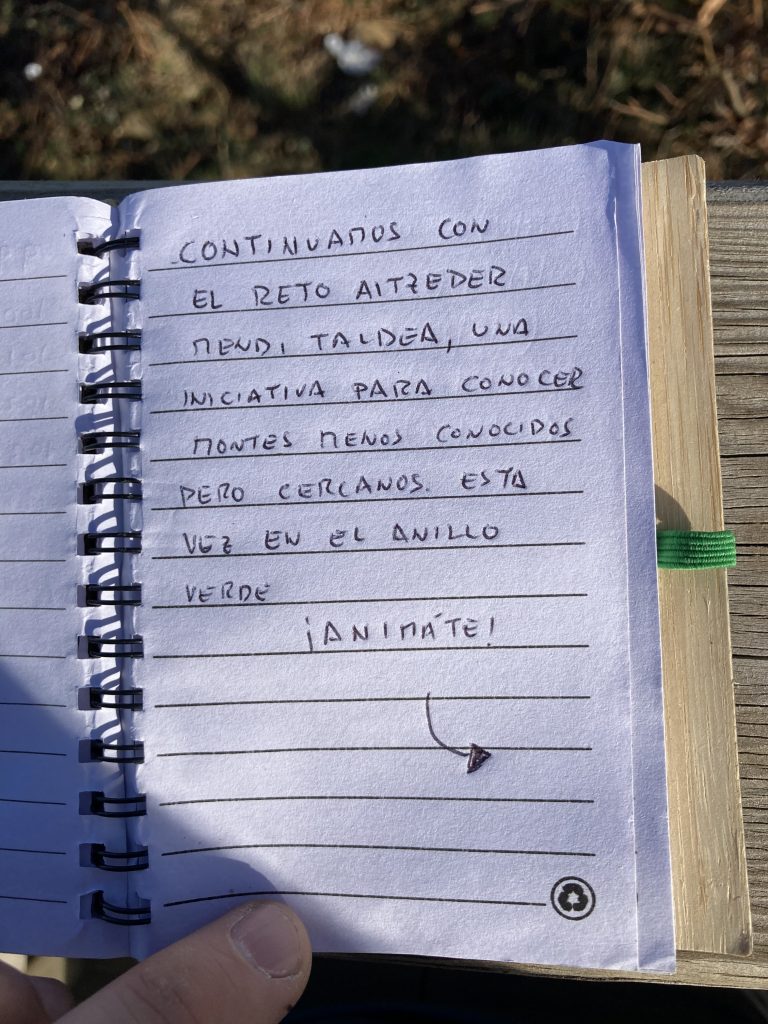 CONTINUAMOS CON
EL RETO AITZEDER
MENDI TALDEA, UNA
INICIATIVA PARA CONOCER
MONTES MENOS CONOCIDOS
PERO CERCANOS. ESTA
VEZ EN EL ANILLO
VERDE
¡ANIMÁTE!